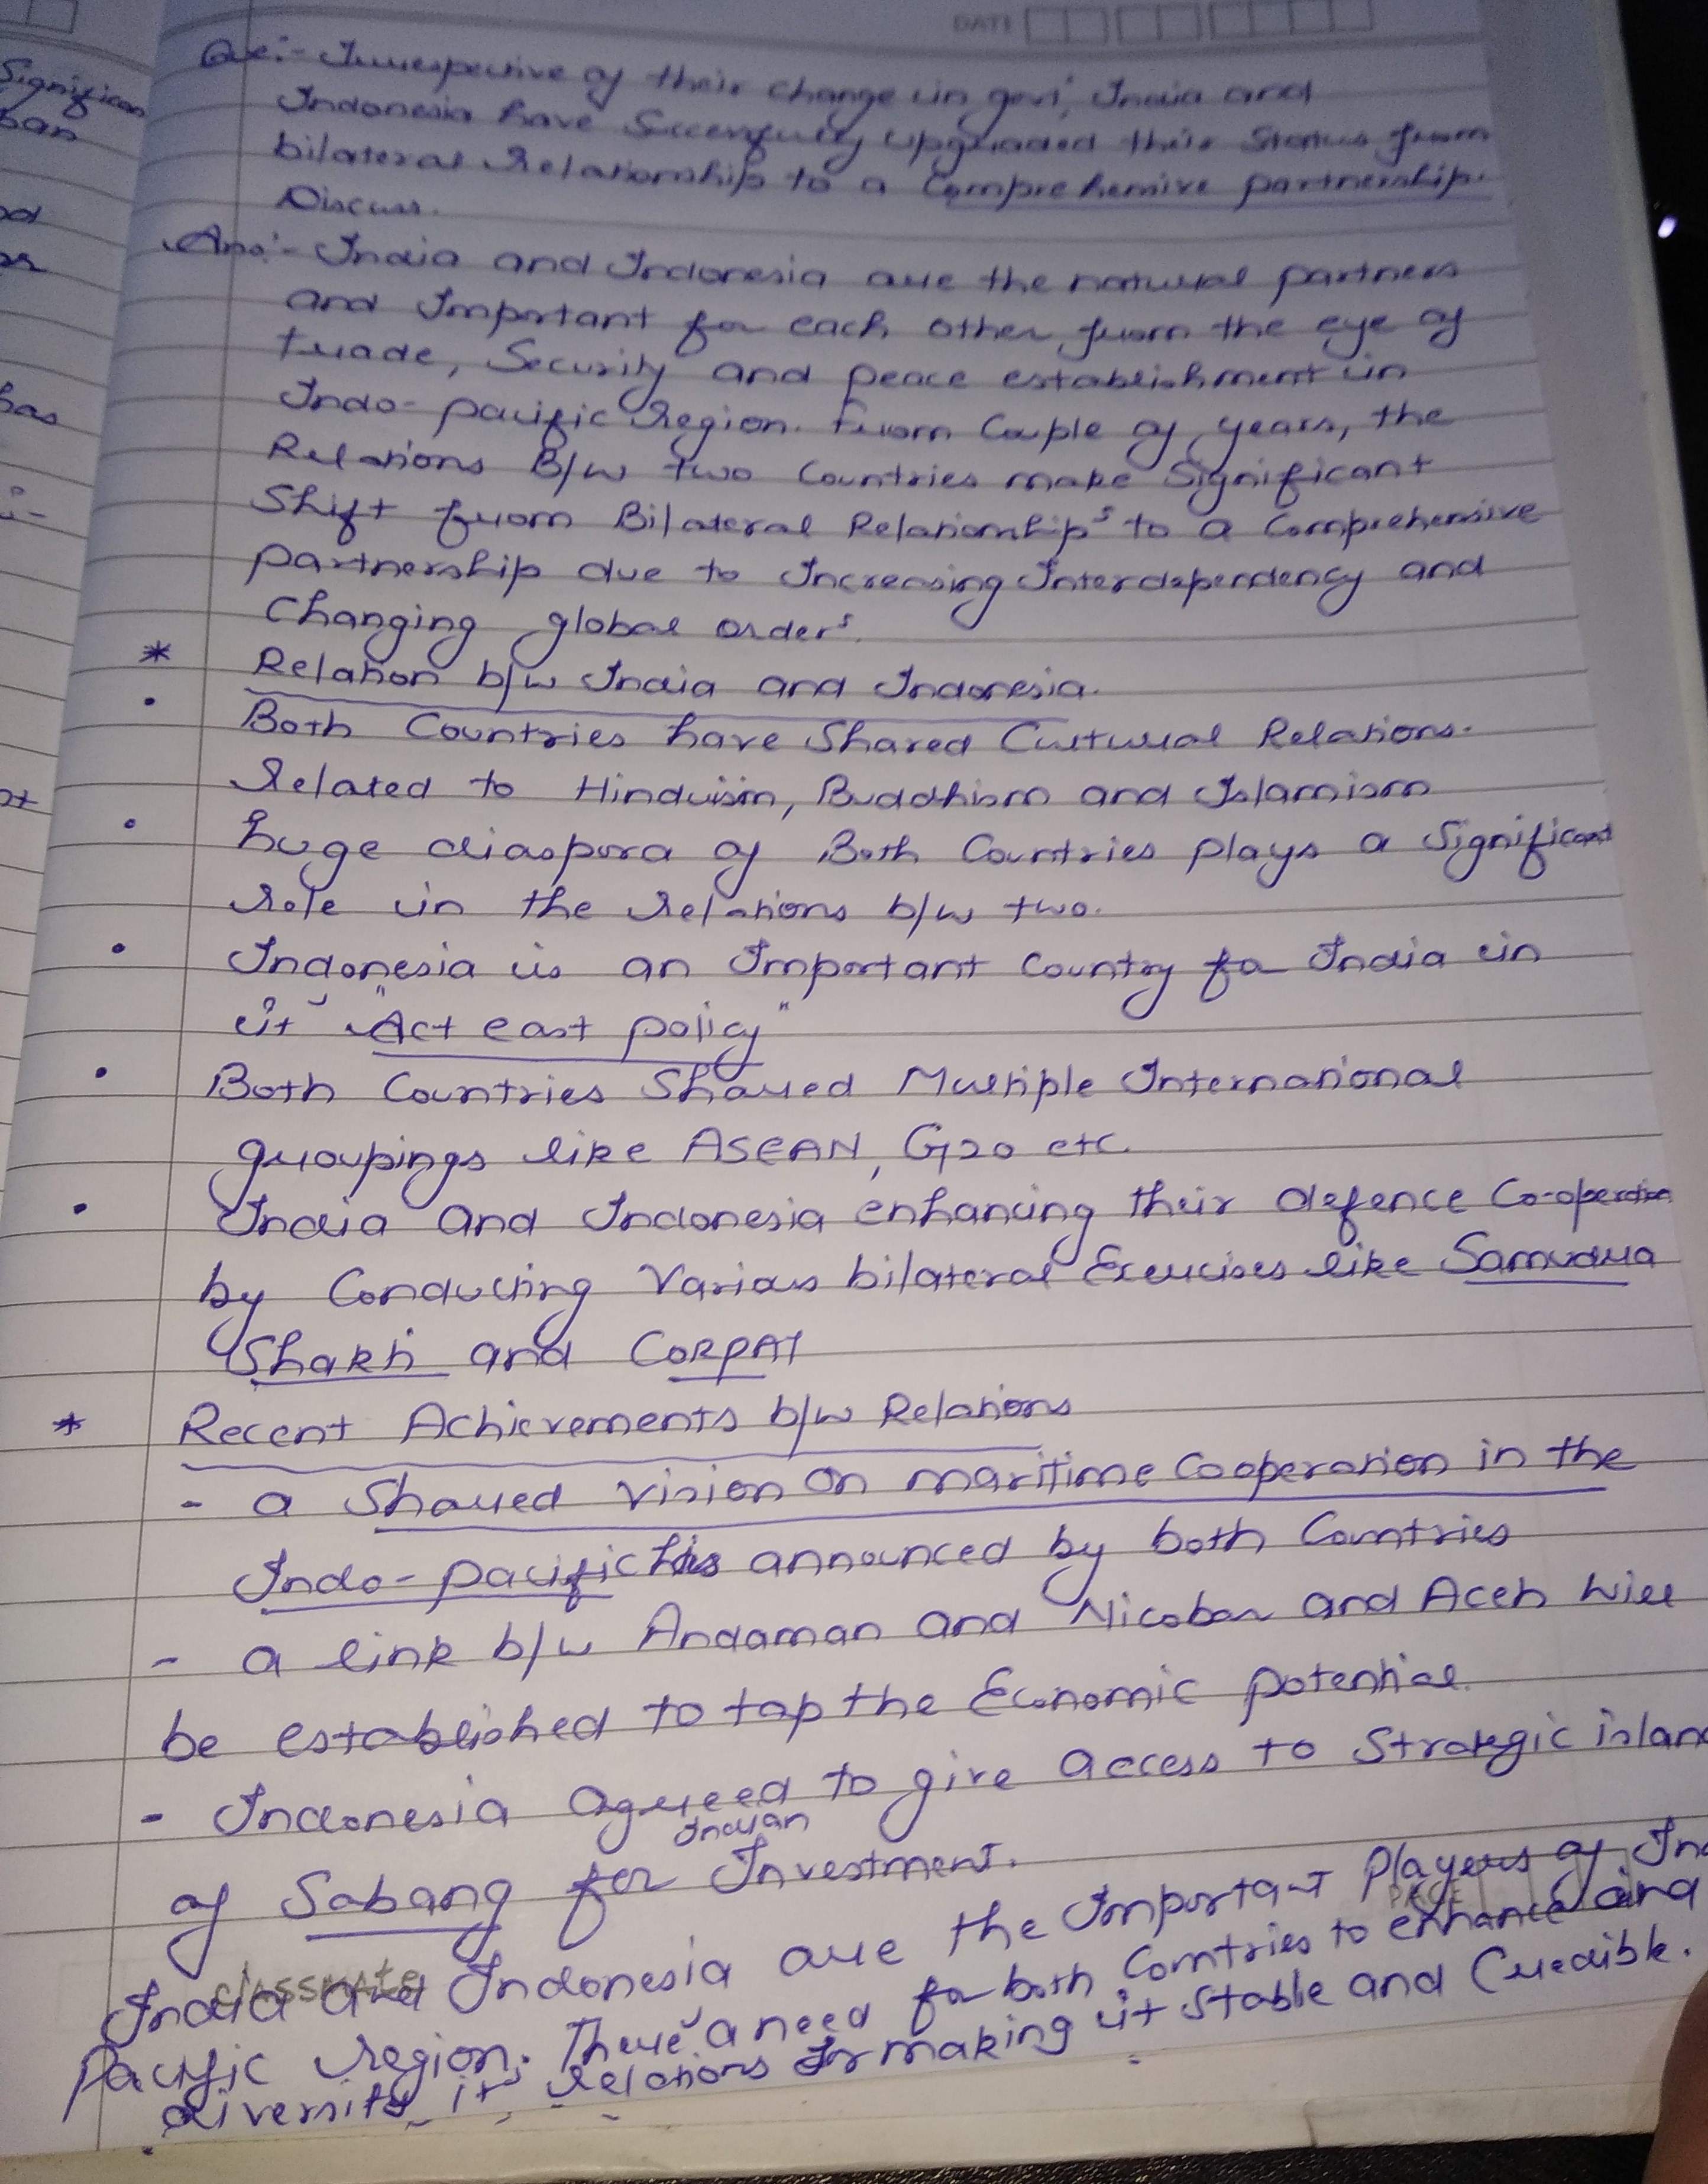 DATE
Significan
ban
od
or
has
i-
nt
Que:- Irrespective of their change in govt, India and
Indonesia have Successfully upgraded their Status from
bilateral Relationship to a Comprehensive partnership.
Discuss.
Ans:- India and Indonesia are the natural partners
and Important for each other from the eye of
trade, Security and peace establishment in
Indo-pacific Region. From Couple of years, the
Relations B/w two Countries make Significant
Shift from Bilateral Relationships to a Comprehensive
partnership due to Increasing Interdependency and
Changing global orders.
* Relation b/w India and Indonesia.
• Both Countries have Shared Cultural Relations.
Related to Hinduism, Buddhism and Islamism
• huge diaspora of Both Countries plays a Significant
role in the relations b/w two.
• Indonesia is an Important Country for India in
it's "Act east policy"
• Both Countries Shared Multiple International
groupings like ASEAN, G20 etc.
• India and Indonesia enhancing their defence Co-operation
by Conducting Various bilateral Exercises like Samudra
Shakti and CORPAT
* Recent Achievements b/w Relations
- a Shared vision on maritime Cooperation in the
Indo-pacific has announced by both Countries
- a link b/w Andaman and Nicobar and Aceh will
be established to tap the Economic potential.
- Indonesia agreed to give access to Strategic islan
of Sabang for Indian Investment.
India and Indonesia are the Important Players of Ind
Pacific region. There's a need for both Countries to enhance and
diversify it's relations for making it Stable and Credible.
classmate
PAGE